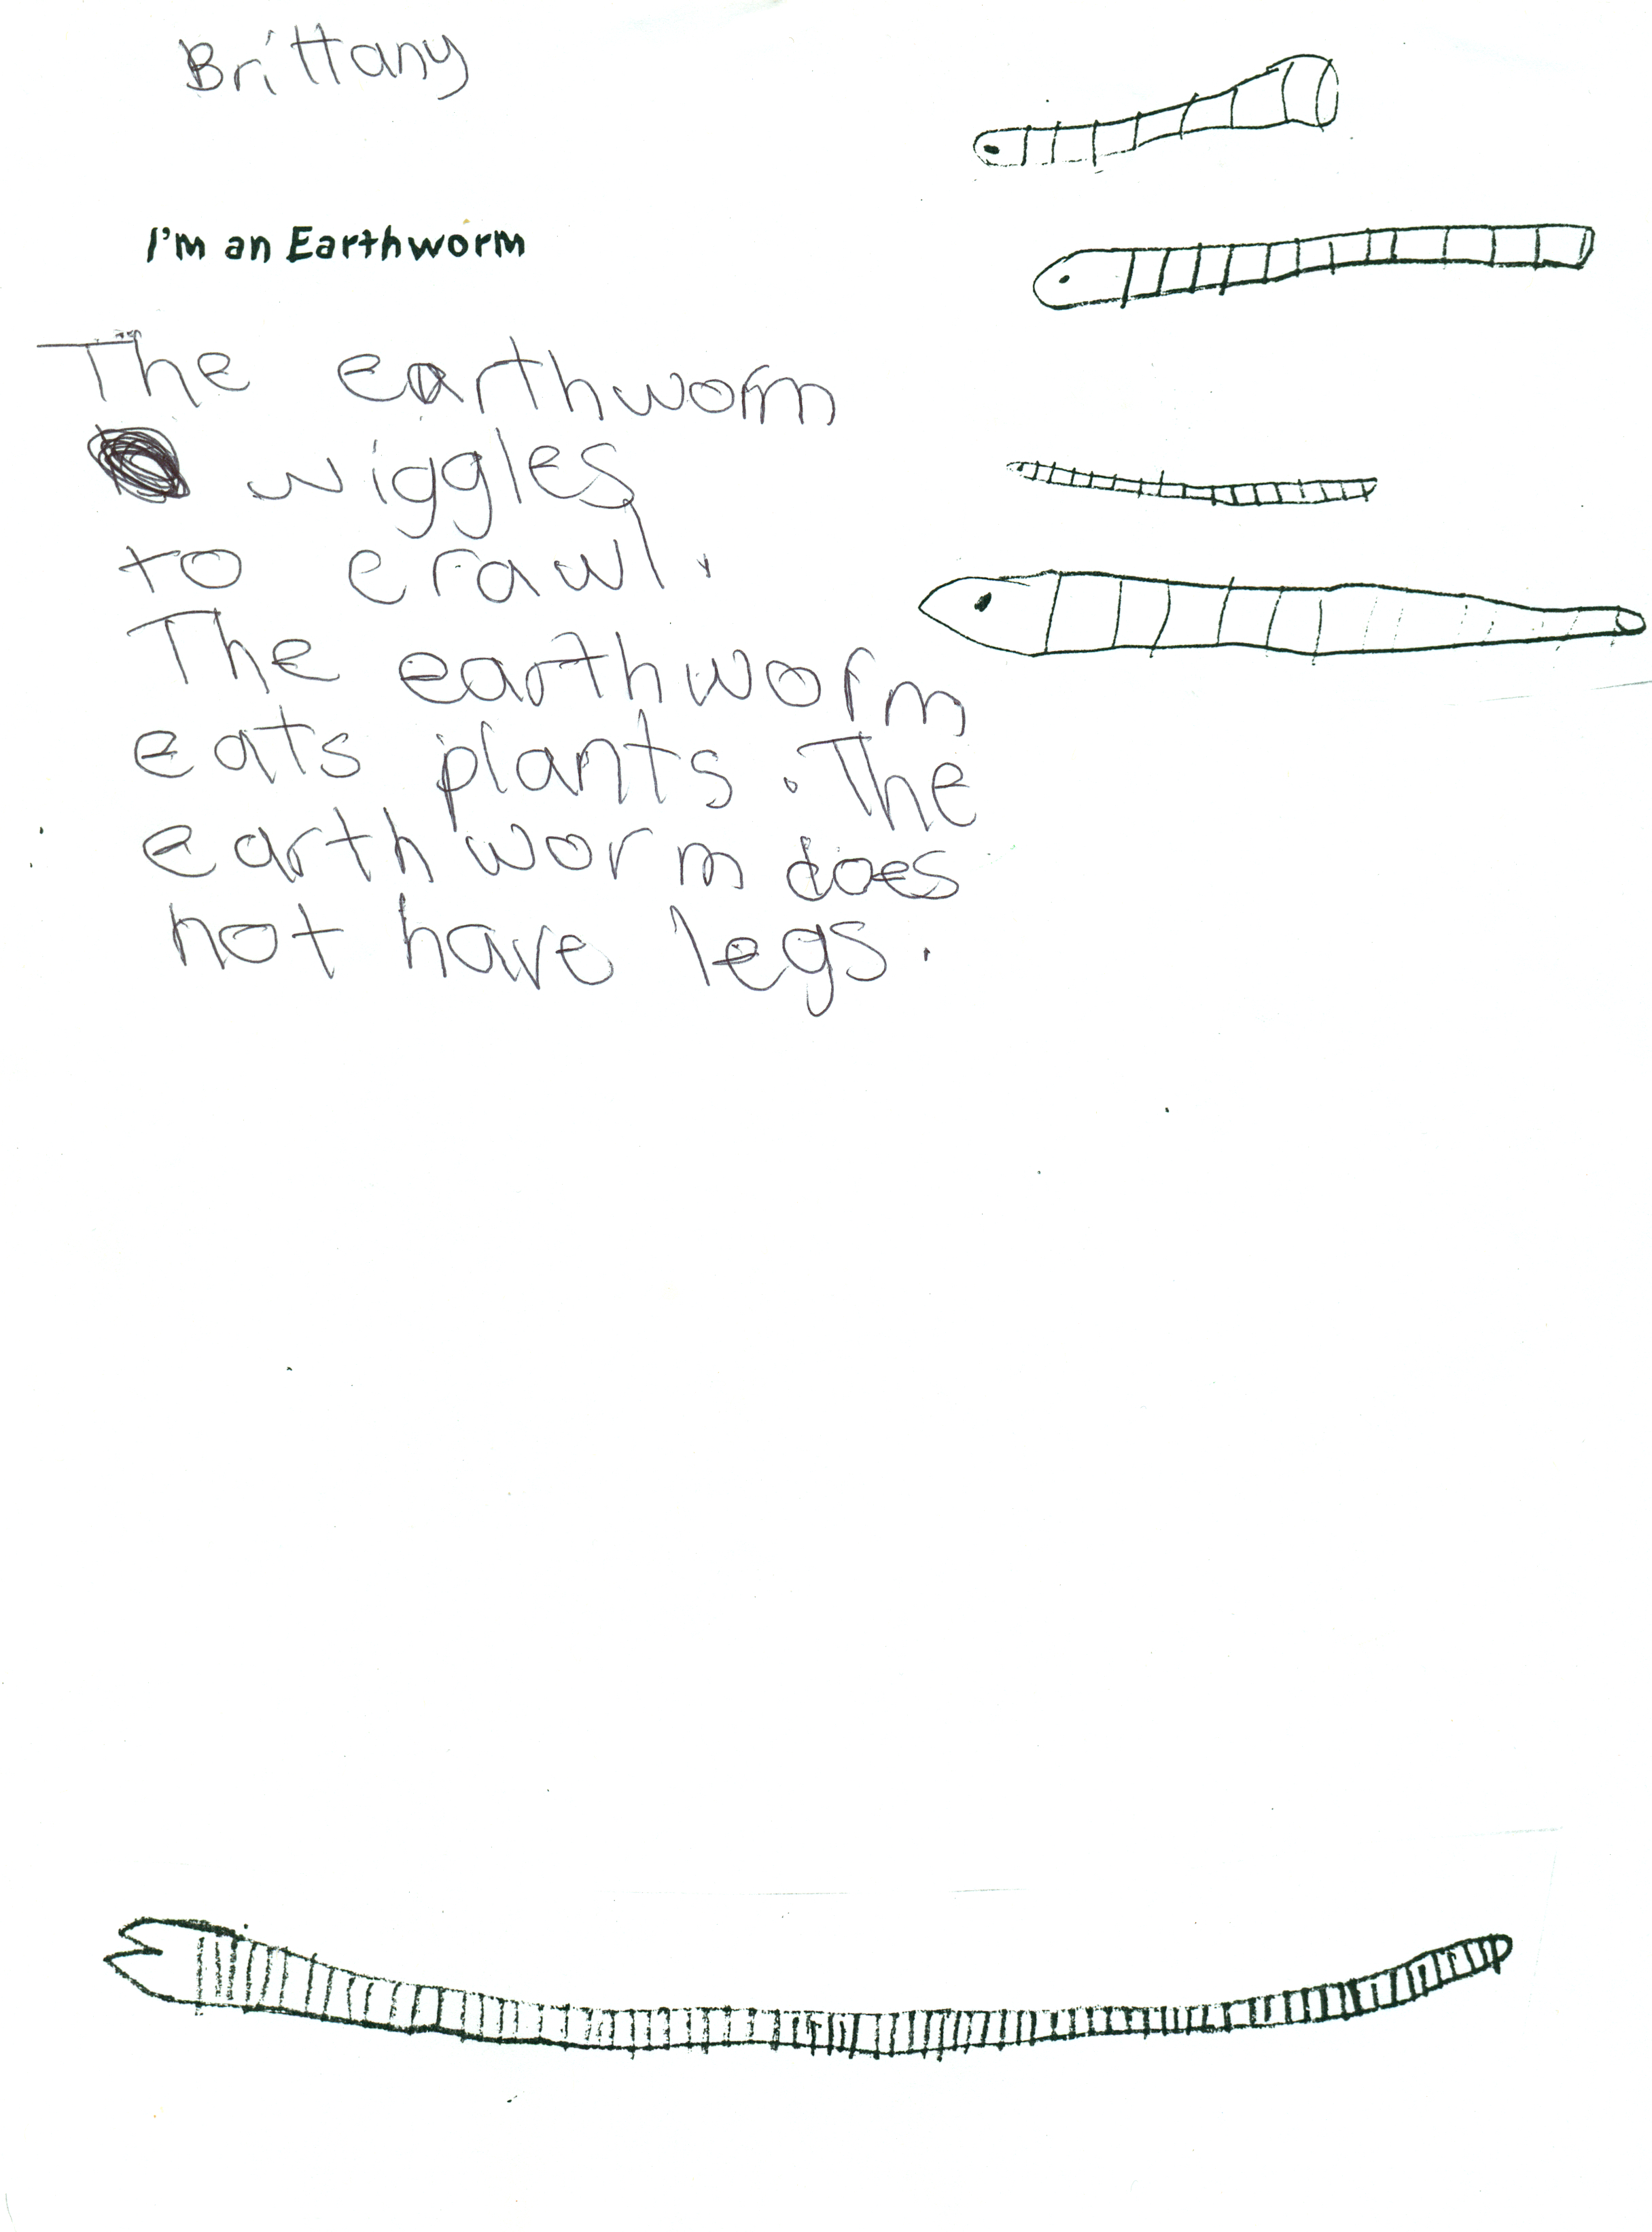 Brittany
I'm an Earthworm
The earthworm
wiggles
to crawl.
The earthworm
eats plants. The
earthworm does
not have legs.